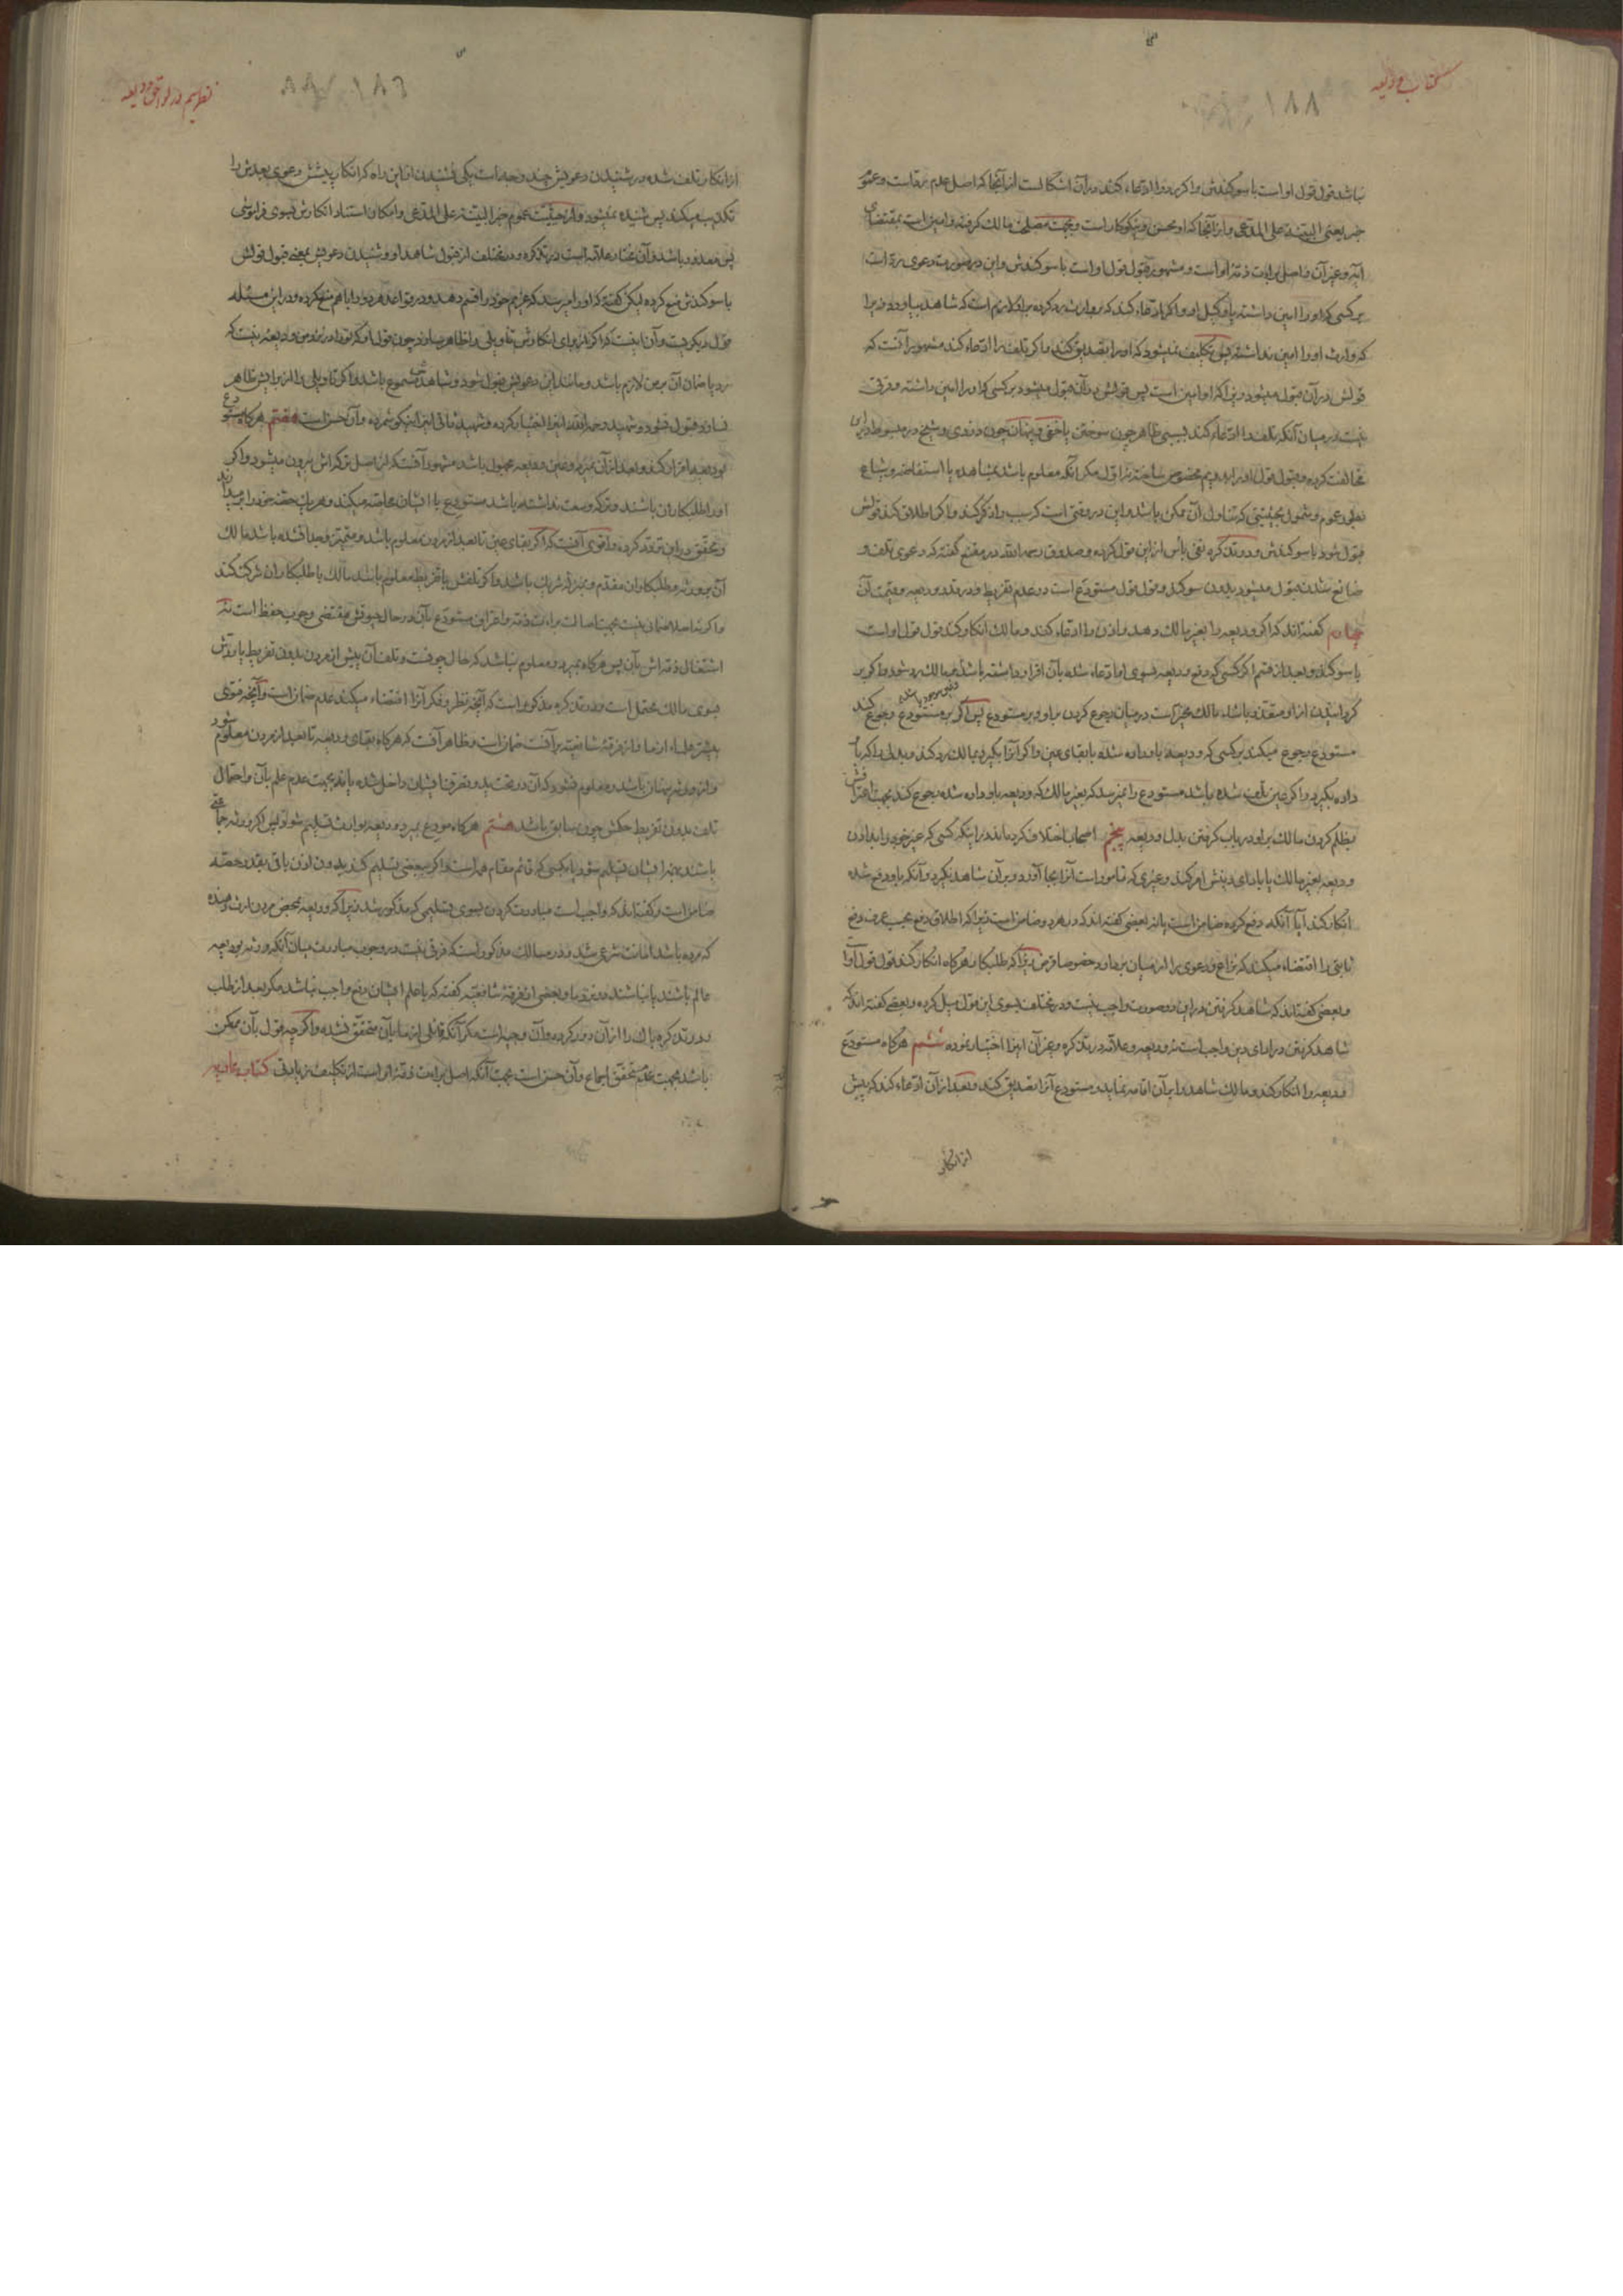 کتاب ودیعه
۱۸۸
نباشد قول قول او است با سوکندش و اکر رد را ادعاء کند در آن اشکالست از آنجا که اصل عدم رد است و عموم
خبر یعنی البینة علی المدعی و از آنجا که او محسن و نیکوکار است و بجهت مصلحت مالک کرفته و امین است بمقتضای
آیه و غیر آن و اصل براءت ذمه او است و مشهور قبول قول او است با سوکندش و این در صورت دعوی رد است
بر کسی که او را امین داشته یا وکیل او و اکر ادعاء کند که بوارث رد کرده بر او لازم است که شاهد بیاورد زیرا
که وارث او را امین نداشته پس تکلیف نمیشود که او را تصدیق کند و اکر تلف را ادعاء کند مشهور آنست که
قولش در آن قبول میشود زیرا که او امین است پس قولش در آن قبول میشود بر کسی که او را امین داشته و فرقی
نیست در میان آنکه تلف را ادعاء کند بسببی ظاهر چون سوختن یا خفی و پنهان چون دزدی و شیخ در مبسوط در این
مخالفت کرده و قبول قول او را بدویم مخصوص ساخته نه اول مکر آنکه معلوم باشد بمشاهده یا استفاضه و شیاع
بطور عموم و شمول بحیثیتی که تناول آن ممکن باشد و این در وقتی است که سبب را ذکر کند و اکر اطلاق کند قولش
قبول شود با سوکندش و در تذکره نفی بأس از این قول کرده و صدوق رحمه الله در مقنع کفته که دعوی تلف و
ضایع شدن قبول میشود بدون سوکند و قول قول مستودع است در عدم تفریط و در قدر ودیعه و قیمت آن
چهارم کفته‌اند که اکر ودیعه را بغیر مالک دهد و اذن را ادعاء کند و مالک انکار کند قول قول او است
با سوکند و بعد از قسم اکر کسی که دفع ودیعه بسوی او ادعاء شده بآن اقرار داشته باشد بمالک رد شود و اکر بر
کردانیدن از او متعذر باشد مالک مخیر است در میان رجوع کردن بر او و بر مستودع پس اکر بر مستودع رجوع کند
مستودع رجوع میکند بر کسی که ودیعه باو داده شده با بقای عین و اکر آنرا بکیرد بمالک رد کند و بدلی را که باو
داده بکیرد و اکر عین تلف شده باشد مستودع را نمیرسد که بغیر مالک که ودیعه باو داده شده رجوع کند بجهت اعترافش
بظلم کردن مالک بر او در باب کرفتن بدل ودیعه پنجم اصحاب اختلاف کرده‌اند در اینکه کسی که غیر خود را بدادن
ودیعه بغیر مالک یا بادای دینش امر کند و غیری که مامور است آنرا بجا آورد و بر آن شاهد نکیرد و آنکه باو دفع شده
انکار کند آیا آنکه دفع کرده ضامن است یا نه بعضی کفته‌اند که در هر دو ضامن است زیرا که اطلاق دفع بحسب عرف دفع
ثابتی را اقتضاء میکند که نزاع و دعوی را از میان بردارد خصوصا قرض زیرا که طلبکار هرکاه انکار کند قول قول او است
و بعضی کفته‌اند که شاهد کرفتن در این دو صورت واجب نیست و در مختلف بسوی این قول میل کرده و بعضی کفته‌اند که
شاهد کرفتن در ادای دین واجب است نه ودیعه و علامه در تذکره و غیر آن اینرا اختیار نموده ششم هرکاه مستودع
ودیعه را انکار کند و مالک شاهد را بر آن اقامه نماید و مستودع آنرا تصدیق کند و بعد از آن ادعاء کند که پیش
از انکار
۱۸۶
از انکار تلف شده در شنیدن دعویش چند وجه است یکی نشنیدن از این راه که انکار پیشش دعوی بعدش را
تکذیب میکند پس شنیده نمیشود و از حیثیت عموم خبر البینة علی المدعی و امکان استناد انکارش بسوی فراموشی
پس معذور باشد و آن مختار علامه است در تذکره و در مختلف از قبول شاهد او و شنیدن دعویش بمعنی قبول قولش
با سوکندش منع کرده لیکن کفته که او را میرسد که غریم خود را قسم دهد و در قواعد هر دو را با هم منع کرده و در این مسئله
قول دیکر هست و آن اینست که اکر از برای انکارش تاویلی را ظاهر سازد چون قول او که تو را در نزد من ودیعه نیست که
رد یا ضمان آن بر من لازم باشد و مانند این دعویش قبول شود و شاهدش مسموع باشد و اکر تاویلی را از برایش ظاهر
نسازد قبول نشود و شهید رحمه الله اینرا اختیار کرده و شهید ثانی اینرا نیکو شمرده و آن حسن است هفتم هرکاه مستودع
بودیعه اقرار کند و بعد از آن بمیرد و عین ودیعه مجهول باشد مشهور آنست که از اصل ترکه‌اش بیرون میشود و اکر
او را طلبکاران باشند و ترکه وسعت نداشته باشد مستودع با ایشان محاصه میکند و هر یک حصه خود را بر میدارند
و محقق در این تردد کرده و اقوی آنست که اکر بقای عین تا بعد از مردن معلوم باشد و متمیز و جدا نشده باشد مالک
آن بر ورثه و طلبکاران مقدم و بمنزله شریک باشد و اکر تلفش با تفریط معلوم باشد مالک با طلبکاران شرکت کند
و اکر نه اصلا ضمان نیست بجهت اصالت براءت ذمه و اعتراف مستودع بآن در حال حیوتش مقتضی وجوب حفظ است نه
اشتغال ذمه‌اش بآن پس هرکاه بمیرد و معلوم نباشد که حال چونست و تلف آن پیش از مردن بدون تفریط یا ردش
بسوی مالک محتمل است و در تذکره مذکور است که آنچه نظر و فکر آنرا اقتضاء میکند عدم ضمان است و آنچه فتوی
بیشتر علماء از ما و از فرقه شافعیه بر آنست ضمان است و ظاهر آنست که هرکاه بقای ودیعه تا بعد از مردن معلوم شود
و از ورثه پنهان باشد و معلوم نشود که آن در تحت ید و تصرف ایشان داخل شده یا نه بجهت عدم علم بآن و احتمال
تلف بدون تفریط حکمش چون سابق باشد هشتم هرکاه مودع بمیرد ودیعه بوارث تسلیم شود پس اکر ورثه جماعتی
باشند بهمه ایشان تسلیم شود یا بکسی که قائم مقام همه است و اکر ببعضی تسلیم کند بدون اذن باقی بقدر حصه
ضامن است و کفته‌اند که واجب است مبادرت کردن بسوی تسلیمی که مذکور شد زیرا که ودیعه بمحض مردن ارث دهنده
که مرده باشد امانت شرعی شد و در مسالک مذکور است که فرقی نیست در وجوب مبادرت میان آنکه ورثه بودیعه
عالم باشند یا نباشند در نزد ما و بعضی از فرقه شافعیه کفته که با علم ایشان دفع واجب نباشد مکر بعد از طلب
و در تذکره باک را از آن دور کرده و آن وجیه است مکر آنکه قائلی از ما بآن متحقق نشده و اکر چه قول بآن ممکن
باشد بجهت عدم تحقق اجماع و آن حسن است بجهت آنکه اصل براءت ذمه او است از تکلیف زیادتی کتاب عاریه